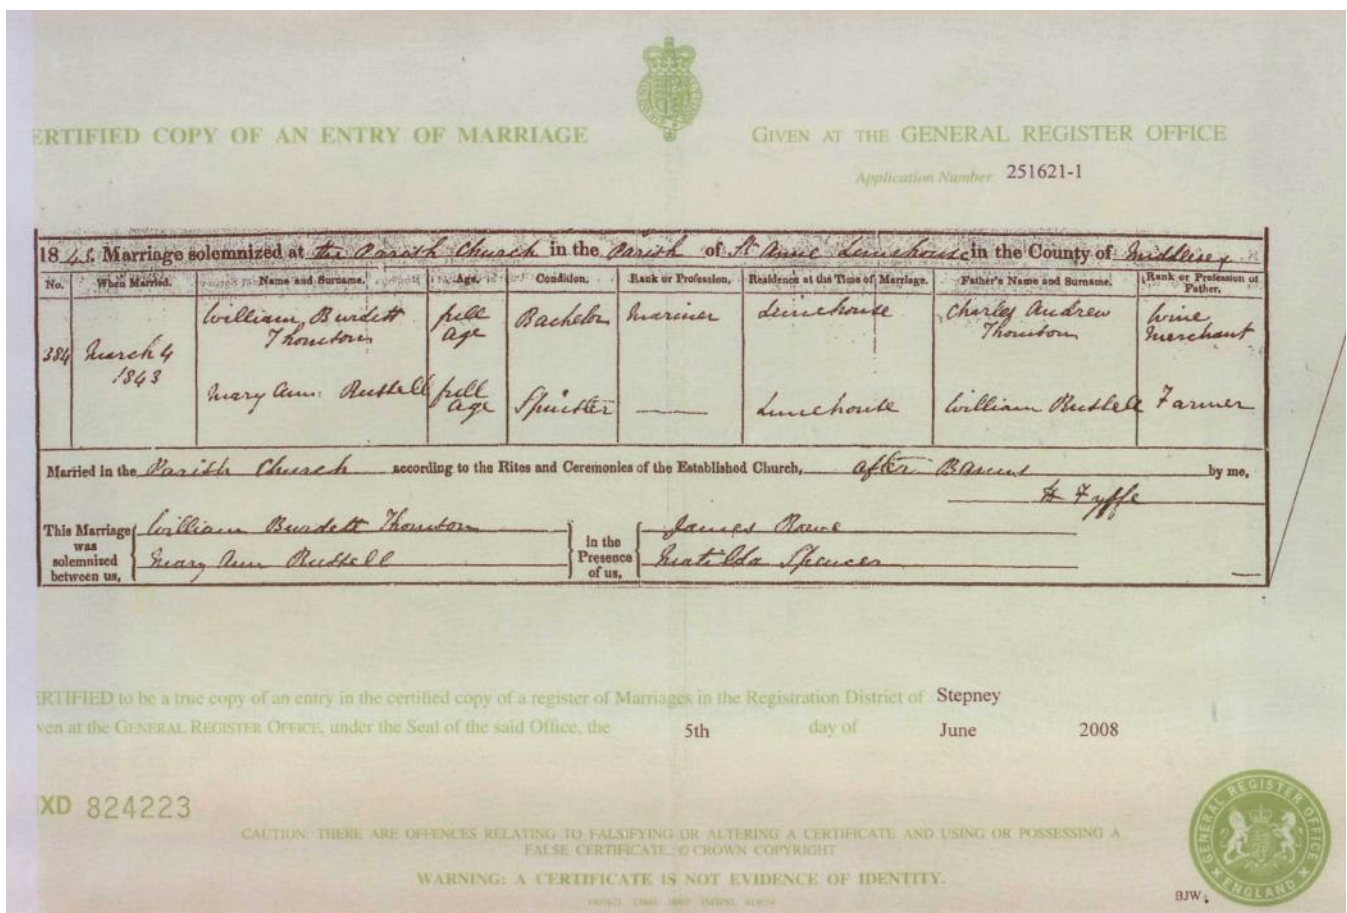 ERTIFIED COPY OF AN ENTRY OF MARRIAGE
GIVEN AT THE GENERAL REGISTER OFFICE
Application Number 251621-1
1843. Marriage solemnized at the Parish Church in the Parish of St Anne Limehouse in the County of Middlesex
No. When Married. Name and Surname. Age. Condition. Rank or Profession. Residence at the Time of Marriage. Father's Name and Surname. Rank or Profession of Father.
384 March 4 1843
William Burdett Thomson full age Bachelor Mariner Limehouse Charles Andrew Thomson Wine Merchant
Mary Ann Russell full age Spinster — Limehouse William Russell Farmer
Married in the Parish Church according to the Rites and Ceremonies of the Established Church, after Banns by me,
H Fyffe
This Marriage was solemnized between us, William Burdett Thomson
Mary Ann Russell
in the Presence of us, James Rowe
Matilda Spencer
ERTIFIED to be a true copy of an entry in the certified copy of a register of Marriages in the Registration District of Stepney
ven at the GENERAL REGISTER OFFICE, under the Seal of the said Office, the 5th day of June 2008
XD 824223
CAUTION: THERE ARE OFFENCES RELATING TO FALSIFYING OR ALTERING A CERTIFICATE AND USING OR POSSESSING A
FALSE CERTIFICATE. © CROWN COPYRIGHT
WARNING: A CERTIFICATE IS NOT EVIDENCE OF IDENTITY.
GENERAL REGISTER OFFICE
ENGLAND
BJW